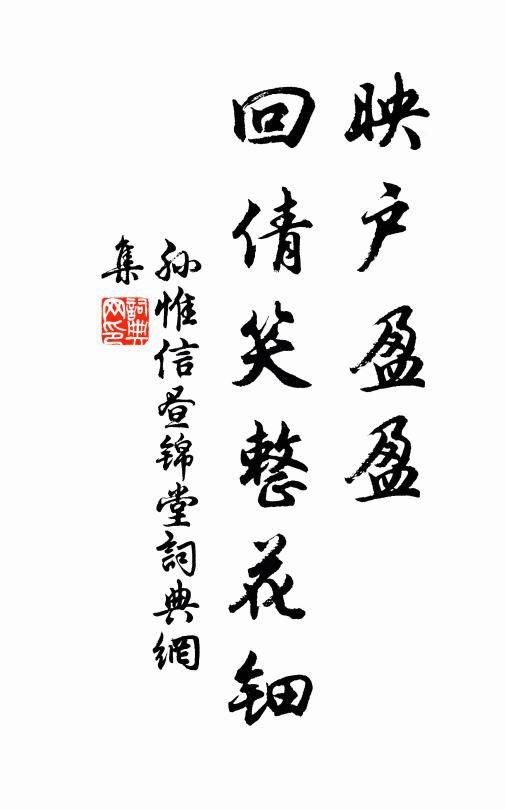 映户盈盈
回倩笑整花钿
孙惟信昼锦堂詞典網
集
詞典网印